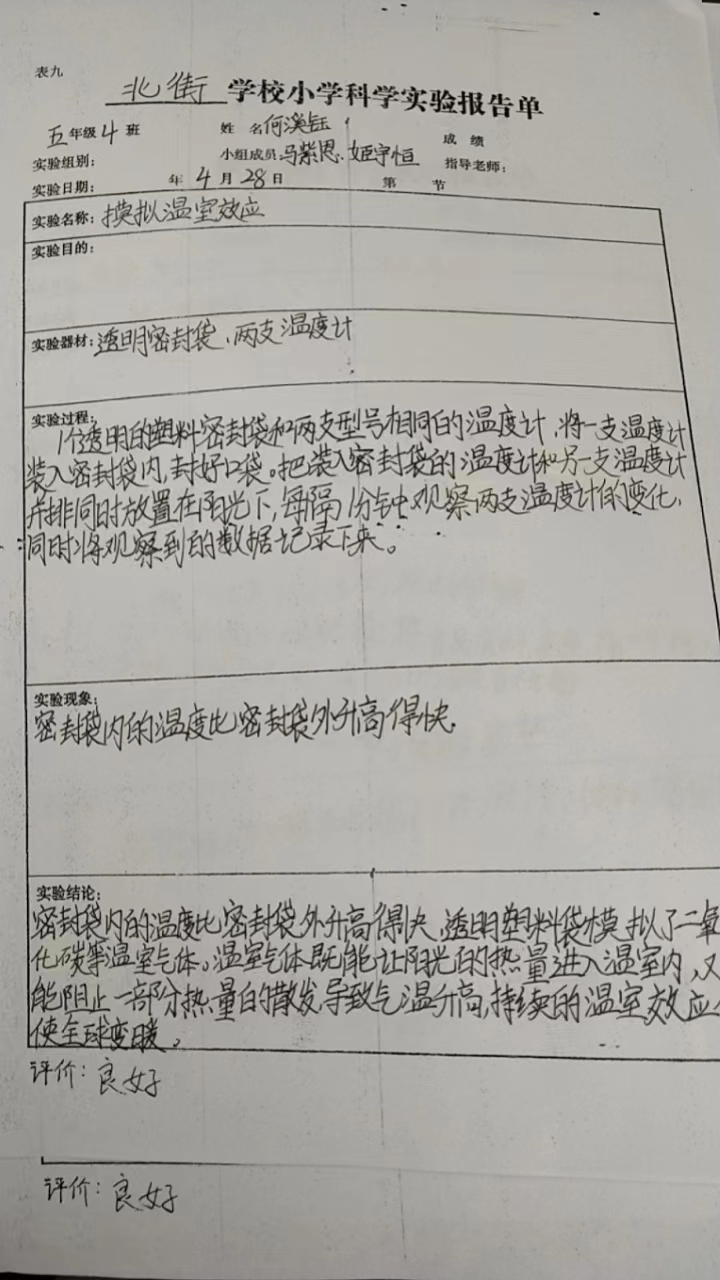 表九
北街学校小学科学实验报告单
五年级4班 姓 名何溪钰 成 绩
实验组别: 小组成员:马紫恩、姬宇恒 指导老师:
实验日期: 年4月28日 第 节
实验名称:模拟温室效应
实验目的:
实验器材:透明密封袋、两支温度计
实验过程:
1个透明的塑料密封袋和两支型号相同的温度计,将一支温度计
装入密封袋内,封好口袋。把装入密封袋的温度计和另一支温度计
并排同时放置在阳光下,每隔1分钟观察两支温度计的变化,
同时将观察到的数据记录下来。
实验现象:
密封袋内的温度比密封袋外升高得快.
实验结论:
密封袋内的温度比密封袋外升高得快.透明塑料袋模拟了二氧
化碳等温室气体。温室气体既能让阳光的热量进入温室内,又
能阻止一部分热量的散发,导致气温升高,持续的温室效应
使全球变暖。
评价:良好
评价:良好